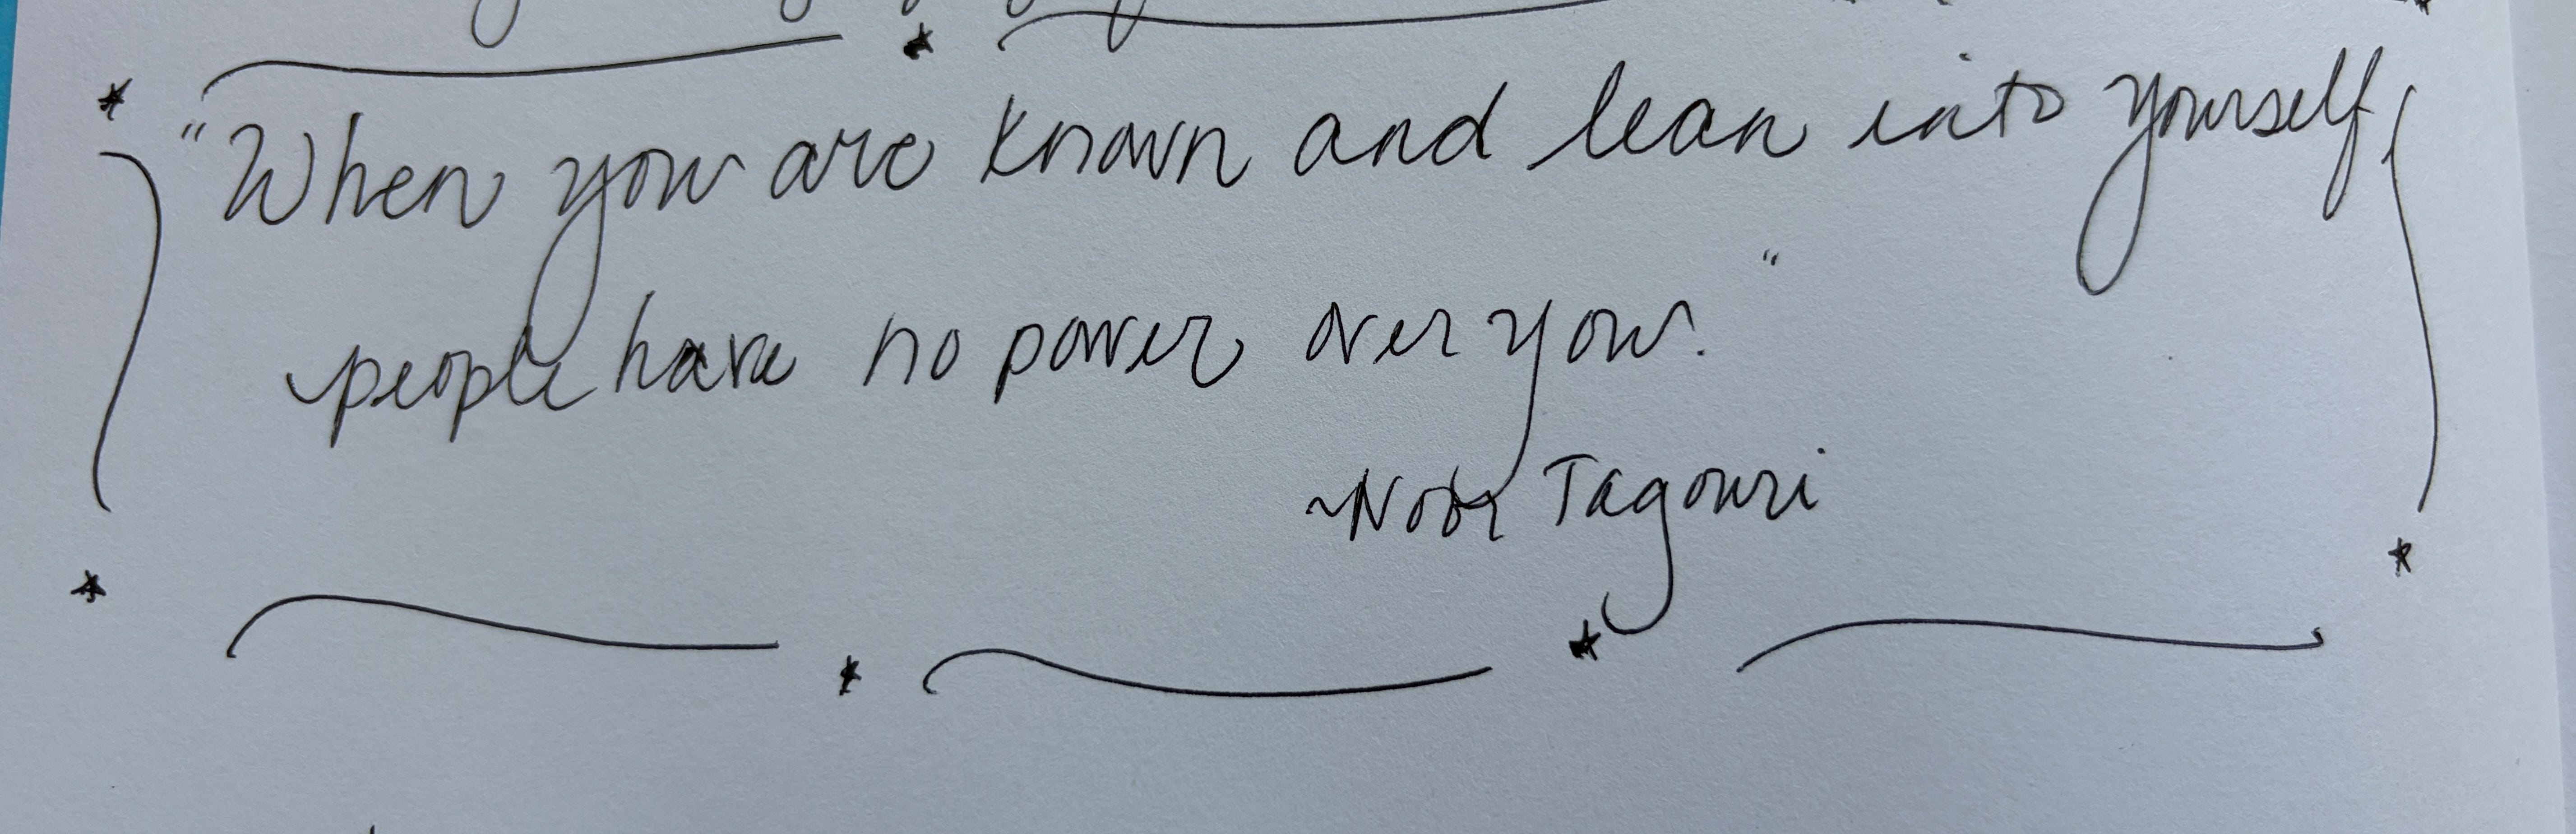 "When you are known and lean into yourself,
people have no power over you."
~Noor Tagouri